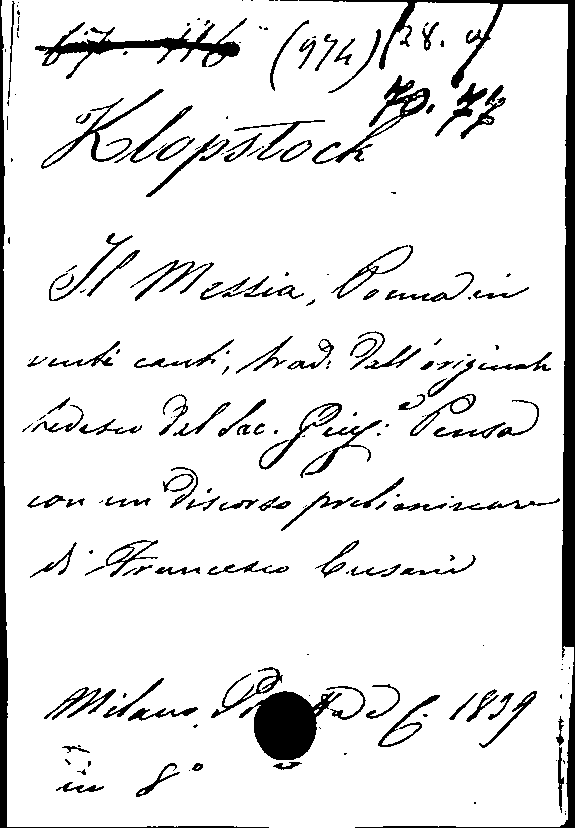 67. 116 (974) (28. a)
70. 77
Klopstock
Il Messia, Poema in
venti canti, trad. dall'originale
tedesco del Sac. Giuse.e Pensa
con un discorso preliminare
di Francesco Cusani
Milano, C. 1839
in 8°